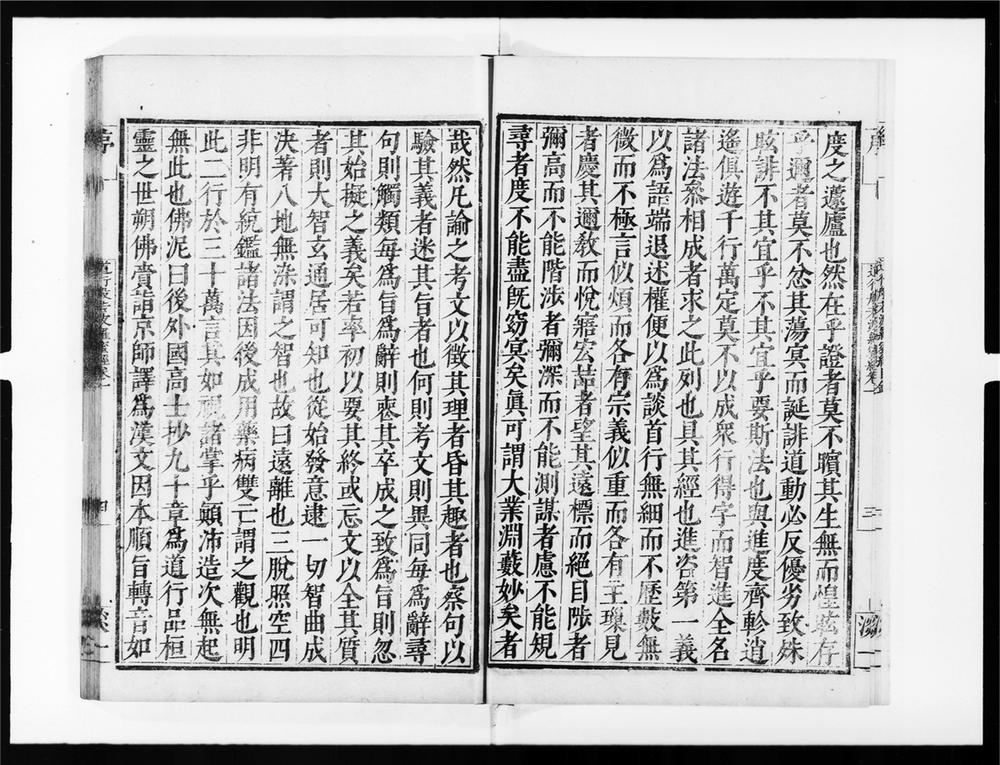 度之蘧廬也然在乎證者莫不曠其生無而惶眩存
乎邇者莫不忿其蕩冥而誕誹道動必反優劣致殊
眩誹不其宜乎不其宜乎要斯法也與進度齊軫逍
遙俱遊千行萬定莫不以成衆行得字而智進全名
諸法參相成者求之此列也具其經也進咨第一義
以爲語端退述權便以爲談首行無細而不歷數無
微而不極言似煩而各有宗義似重而各有主瑣見
者慶其邇教而悅寤宏喆者望其遠標而絕目陟者
彌高而不能階涉者彌深而不能測謀者慮不能規
尋者度不能盡旣窈冥矣眞可謂大業淵藪妙矣者
哉然凡諭之考文以徵其理者昏其趣者也察句以
驗其義者迷其旨者也何則考文則異同每爲辭尋
句則觸類每爲旨爲辭則喪其卒成之致爲旨則忽
其始擬之義矣若率初以要其終或忘文以全其質
者則大智玄通居可知也從始發意逮一切智曲成
決著八地無染謂之智也故曰遠離也三脫照空四
非明有統鑑諸法因後成用藥病雙亡謂之觀也明
此二行於三十萬言其如視諸掌乎顚沛造次無起
無此也佛泥曰後外國高士抄九十章爲道行品桓
靈之世朔佛賷詣京師譯爲漢文因本順旨轉音如